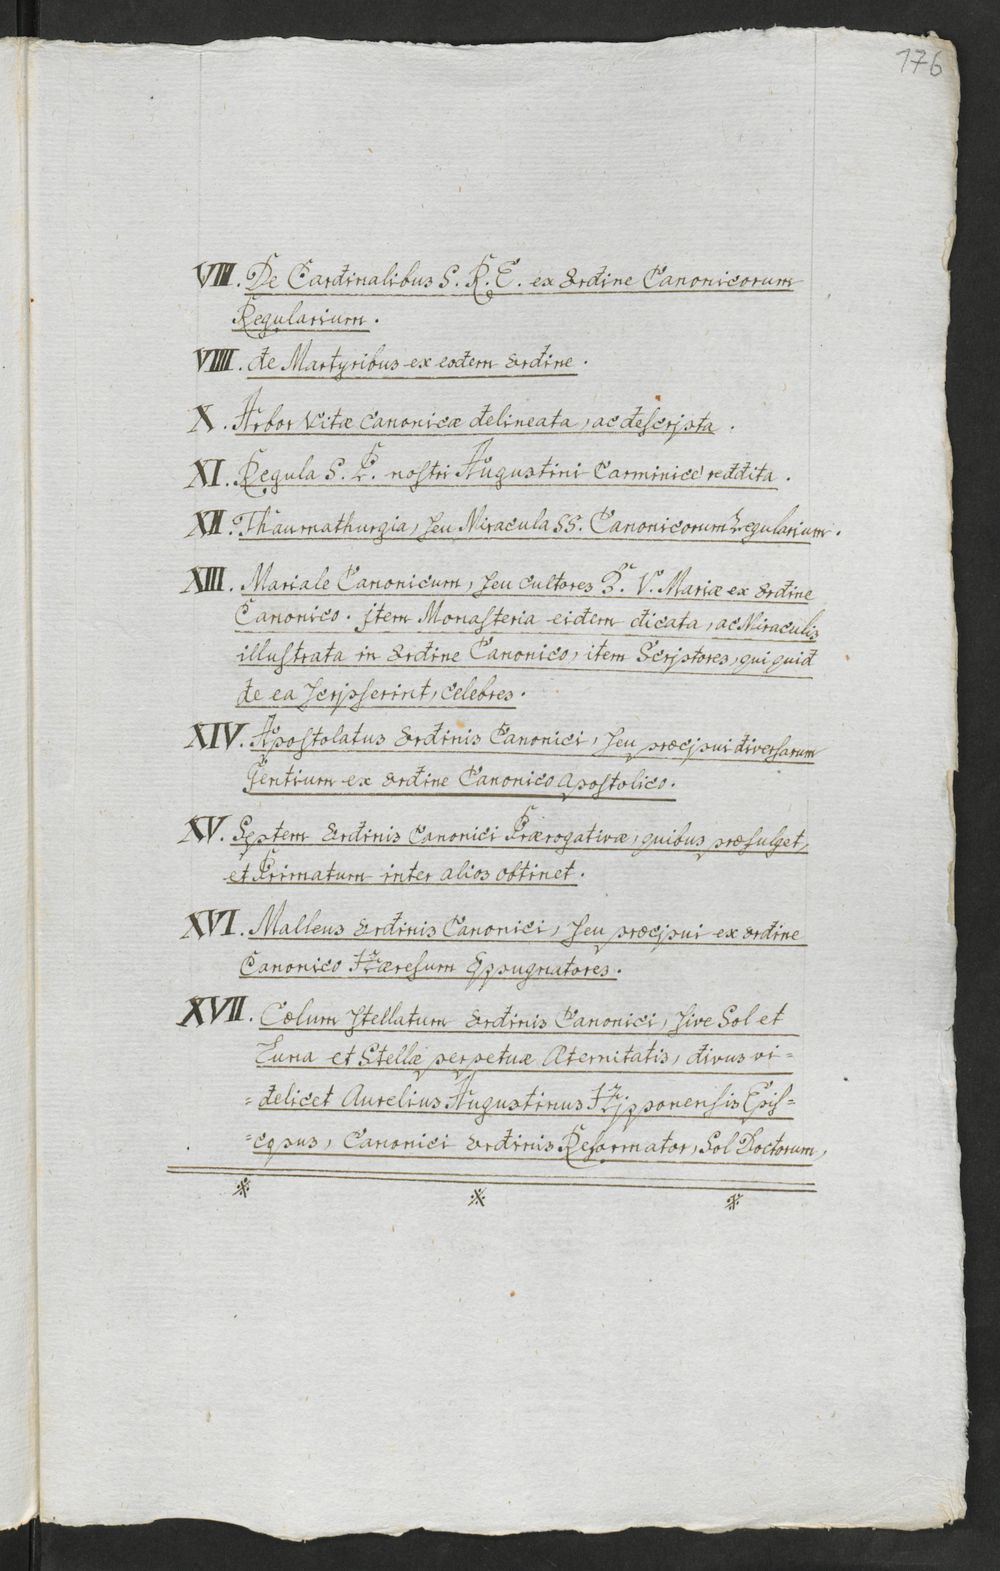 176
VIII. De Cardinalibus S. R. E. ex Ordine Canonicorum
Regularium.
VIIII. de Martyribus ex eodem Ordine.
X. Arbor Vitæ Canonicæ delineata, ac descripta.
XI. Regula S. P. nostri Augustini Carminicè reddita.
XII. Thaumathurgia, seu Miracula SS. Canonicorum Regularium.
XIII. Mariale Canonicum, seu cultores B. V. Mariæ ex Ordine
Canonico. item Monasteria eidem dicata, ac Miraculis
illustrata in Ordine Canonico, item Scriptores, qui quid
de ea scripserint, celebres.
XIV. Apostolatus Ordinis Canonici, seu præcipui diversarum
Gentium ex Ordine Canonico Apostolico.
XV. Septem Ordinis Canonici Prærogativæ, quibus præfulget,
et Primatum inter alios obtinet.
XVI. Malleus Ordinis Canonici, seu præcipui ex ordine
Canonico Hæresum Oppugnatores.
XVII. Cœlum stellatum Ordinis Canonici, sive Sol et
Luna et Stellæ perpetuæ Æternitatis, divus vi=
=delicet Aurelius Augustinus Hipponensis Epis=
=copus, Canonici Ordinis Reformator, Sol Doctorum,